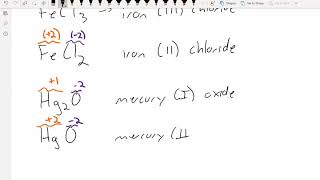 FeCl3 → iron (III) chloride
(+2) (-2)
FeCl2 iron (II) chloride
+1 -2
Hg2O mercury (I) oxide
+2 -2
HgO mercury (II